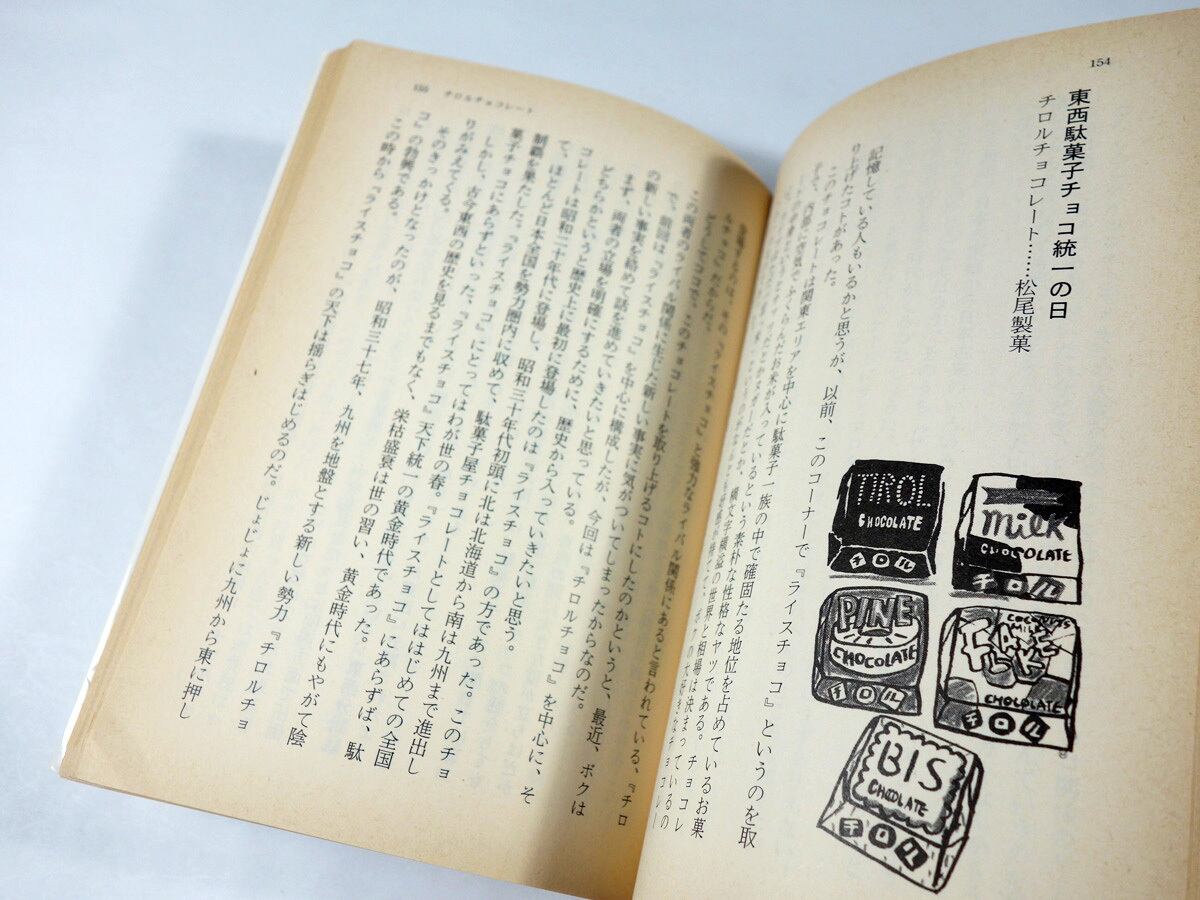 154
東西駄菓子チョコ統一の日
チロルチョコレート……松尾製菓
TIROL
CHOCOLATE
チロル
milk
CHOCOLATE
チロル
PINE
CHOCOLATE
チロル
COCONUTS
MILK
CHOCOLATE
チロル
BIS
CHOCOLATE
チロル
記憶している人もいるかと思うが、以前、このコーナーで『ライスチョコ』というのを取
り上げたコトがあった。
このチョコレートは関東エリアを中心に駄菓子一族の中で確固たる地位を占めているお菓
子で、内部に空気でふくらんだお米が入っているという素朴な性格なヤツである。チョコレ
横文字横溢の世界と相場は決まっているの
ボクの大好きなチョコレー
『ライスチョコ』と強力なライバル関係にあると言われている、『チロ
ルチョコ』だからだ。
どうしてココで、このチョコレートを取り上げるコトにしたのかというと、最近、ボクは
この両者のライバル関係に生じた新しい事実に気がついてしまったからなのだ。
で、前回は『ライスチョコ』を中心に構成したが、今回は『チロルチョコ』を中心に、そ
の新しい事実を絡めて話を進めていきたいと思っている。
まず、両者の立場を明確にするために、歴史から入っていきたいと思う。
どちらかというと歴史上に最初に登場したのは『ライスチョコ』の方であった。このチョ
コレートは昭和二十年代に登場し、昭和三十年代初頭に北は北海道から南は九州まで進出し
て、ほとんど日本全国を勢力圏内に収めて、駄菓子屋チョコレートとしてははじめての全国
制覇を果たした。『ライスチョコ』にとってはわが世の春。『ライスチョコ』にあらずば、駄
菓子チョコにあらずといった、『ライスチョコ』天下統一の黄金時代であった。
しかし、古今東西の歴史を見るまでもなく、栄枯盛衰は世の習い、黄金時代にもやがて陰
りがみえてくる。
そのきっかけとなったのが、昭和三十七年、九州を地盤とする新しい勢力『チロルチョ
コ』の勃興である。
この時から『ライスチョコ』の天下は揺らぎはじめるのだ。じょじょに九州から東に押し
155 チロルチョコレート